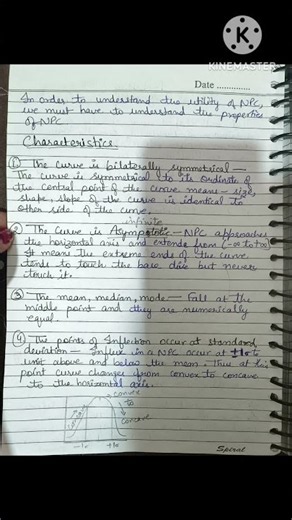 K
KINEMASTER
Date ..............
In order to understand the utility of NPC,
we must have to understand the properties
of NPC
Characteristics
① The curve is bilaterally symmetrical —
The curve is symmetrical to its ordinate of
the central point of the curve means - size,
shape, slope of the curve is identical to
other side of the curve.
infinite
② The curve is Asymptotic - NPC approaches
the horizontal axis and extends from (-∞ to +∞)
It means the extreme ends of the curve
tends to touch the base line but never
touch it.
③ The mean, median, mode — fall at the
middle point and they are numerically
equal.
④ The points of Inflection occur at standard
deviation — Influx in a NPC occur at ±1σ to
unit above and below the mean. Thus at this
point curve changes from convex to concave
to the horizontal axis.
convex
to
concave
-1σ +1σ
Spiral